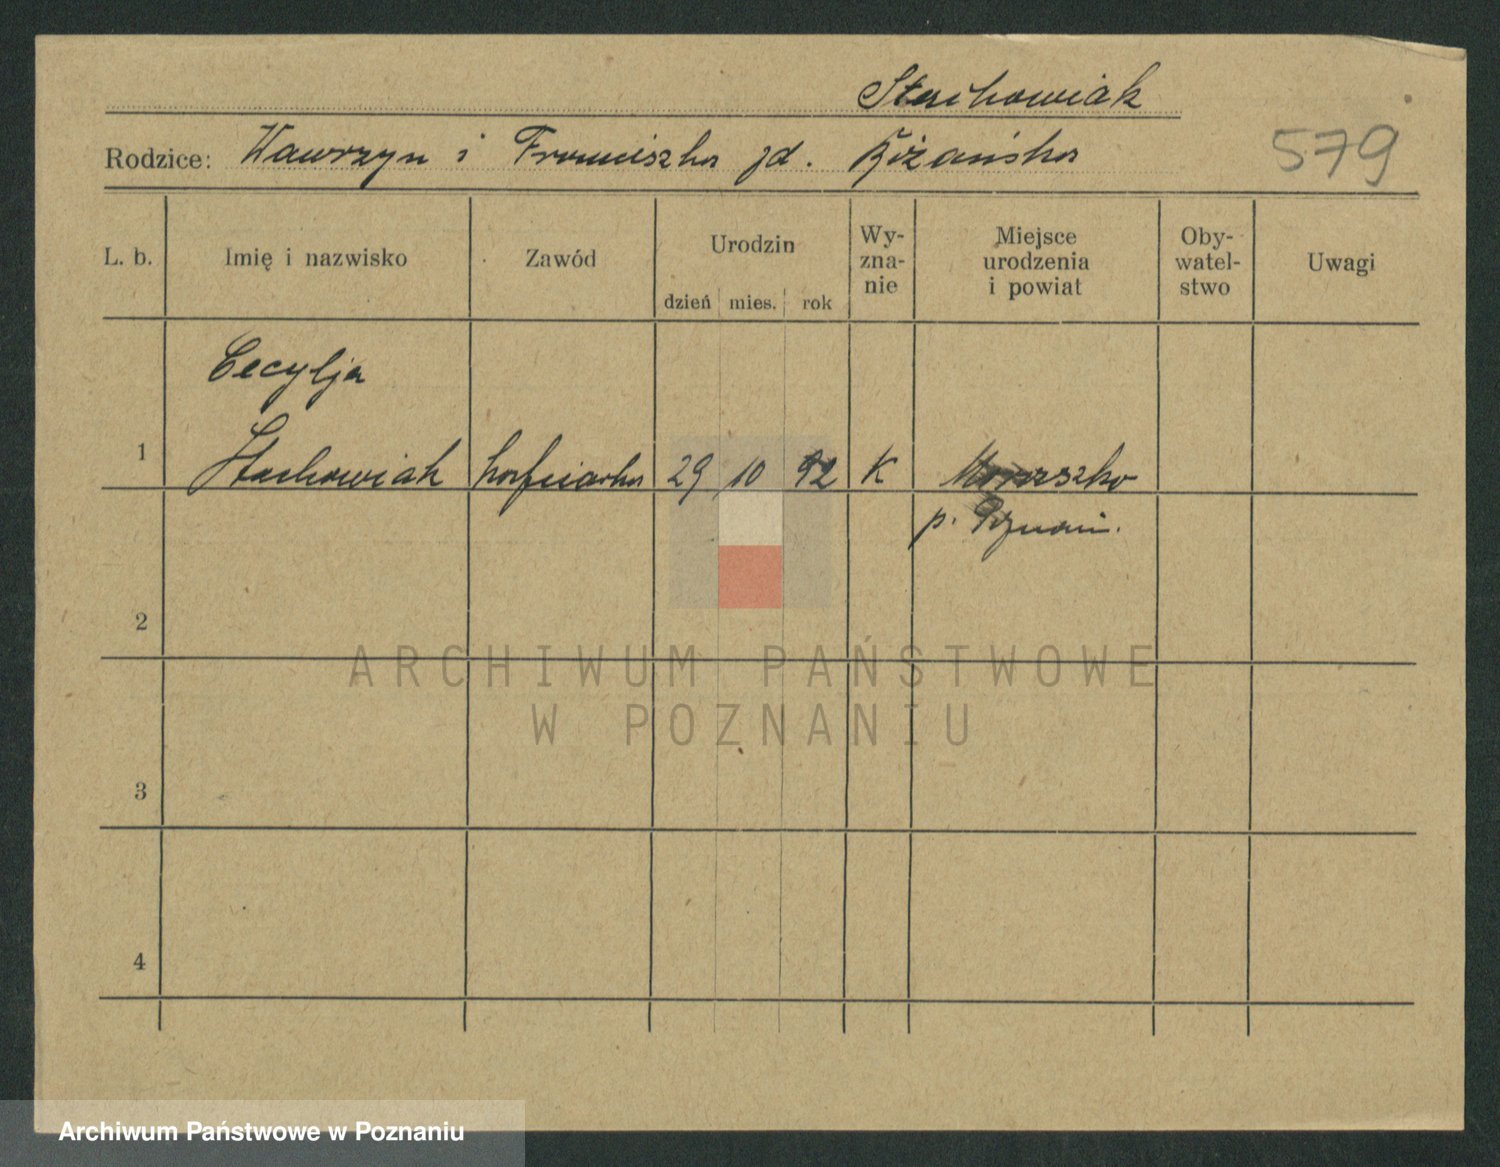 Stachowiak
Rodzice: Wawrzyn i Franciszka zd. Biżańska
579
L. b. Imię i nazwisko Zawód Urodzin dzień mies. rok Wy-zna-nie Miejsce urodzenia i powiat Oby-watel-stwo Uwagi
Cecylja
1 Stachowiak 29 10 92 K
p. Poznań.
2
3
4
ARCHIWUM PAŃSTWOWE
W POZNANIU
Archiwum Państwowe w Poznaniu